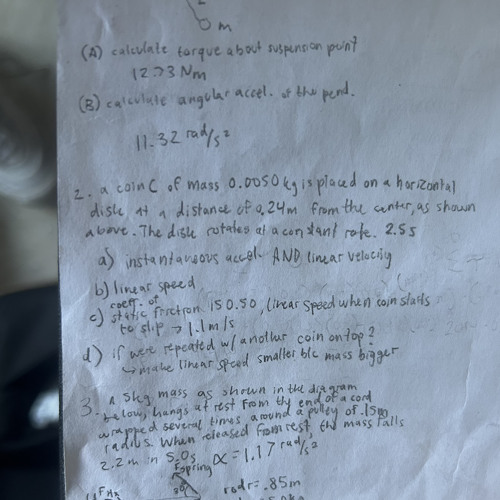 m
(A) calculate torque about suspension point
12.73 Nm
(B) calculate angular accel. of the pend.
11.32 rad/s²
2. a coin C of mass 0.0050 kg is placed on a horizontal
disk at a distance of 0.24m from the center, as shown
above. The disk rotates at a constant rate. 2.5s
a) instantaneous accel AND linear velocity
b) linear speed
coeff. of
c) static friction is 0.50, linear speed when coin starts
to slip → 1.1 m/s
d) if were repeated w/ another coin on top?
↳ make linear speed smaller b/c mass bigger
3. a 5kg mass as shown in the diagram
below, hangs at rest from the end of a cord
wrapped several times around a pulley of .15m
radius. When released from rest, the mass falls
2.2m in 5.0s α = 1.17 rad/s²
Fspring
rod r = .85m